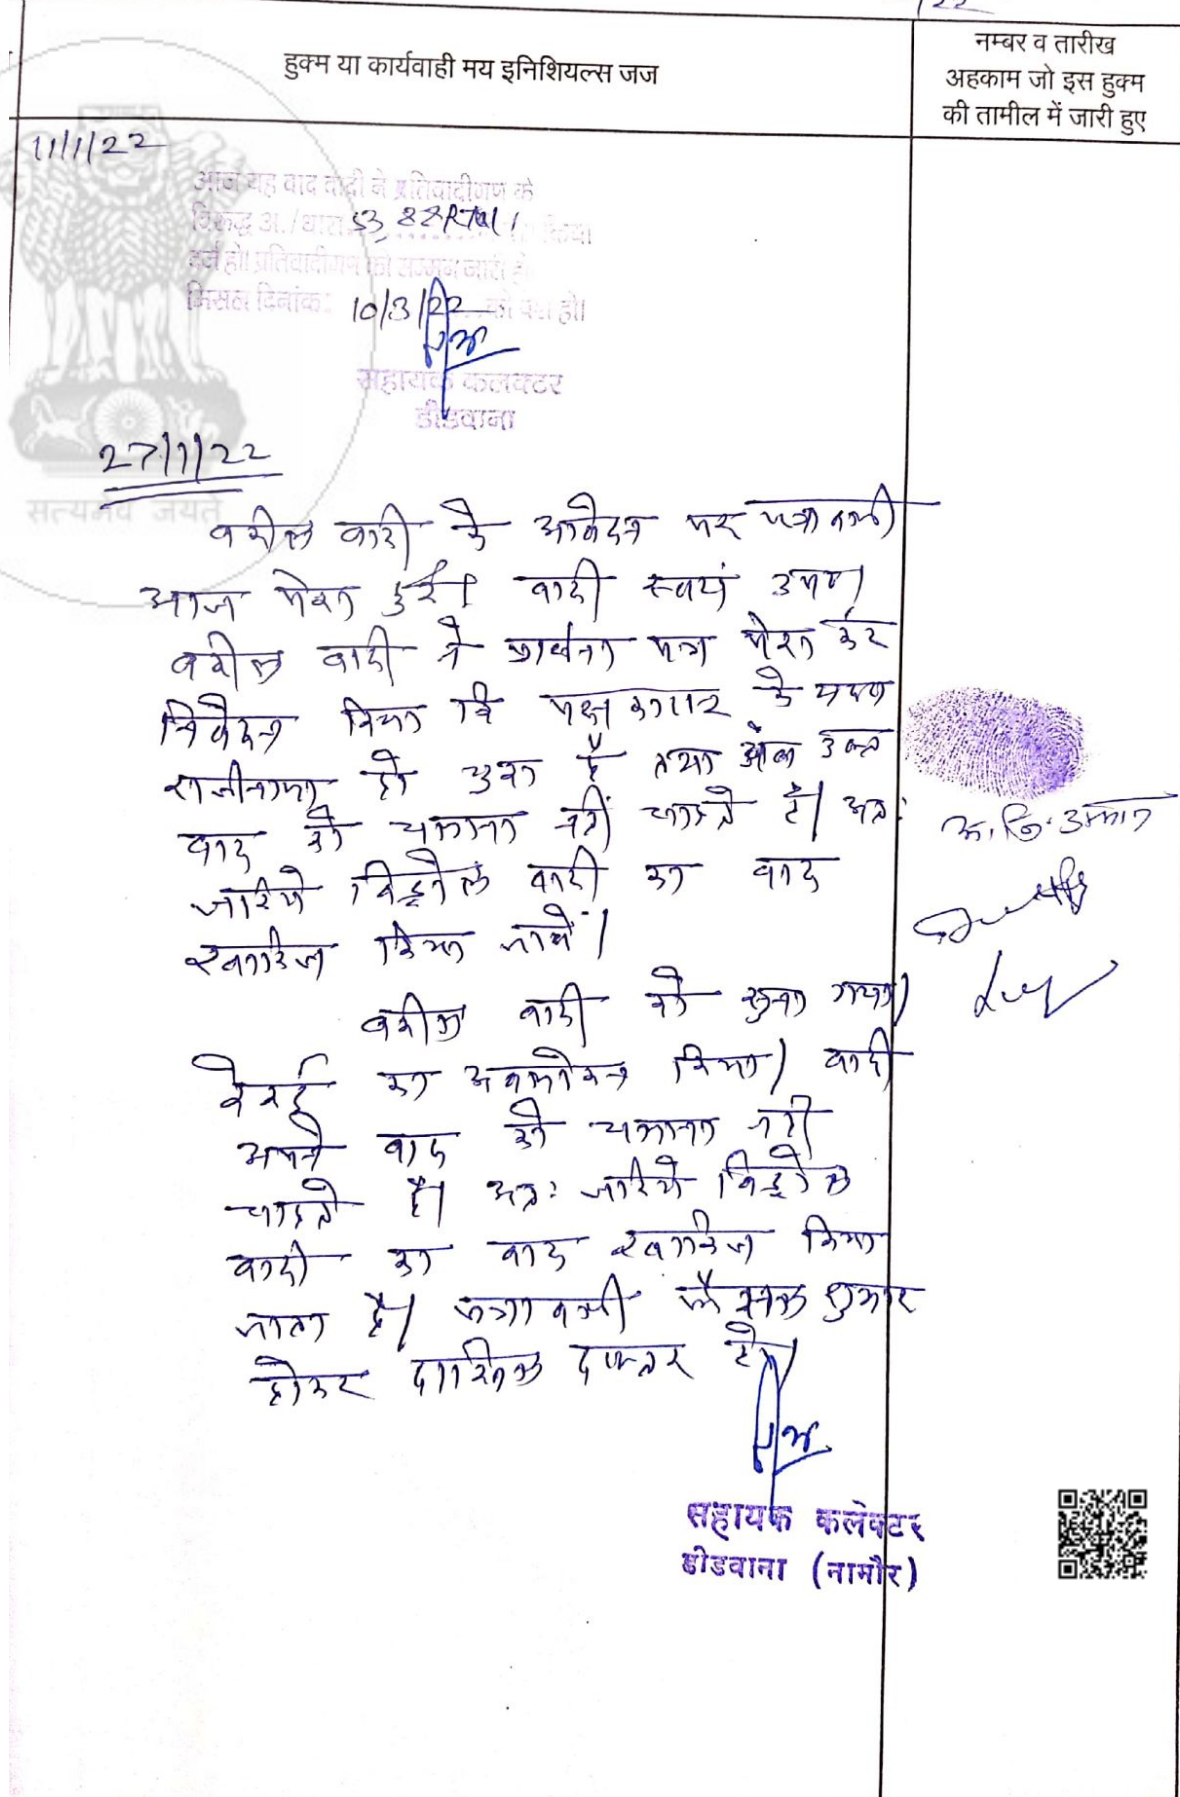 /22
हुक्म या कार्यवाही मय इनिशियल्स जज
नम्बर व तारीख
अहकाम जो इस हुक्म
की तामील में जारी हुए
11/1/22
आज यह वाद वादी ने प्रतिवादीगण के
विरूद्ध अ./धारा 53, 88 RTA किया
दर्ज हो। प्रतिवादीगण को सम्मन जारी हो
मिसल दिनांक: 10/3/22 को पेश हो।
सहायक कलक्टर
डीडवाना
27/1/22
सत्यमेव जयते
वकील वादी के आवेदन पर पत्रावली
आज पेश हुई। वादी स्वयं उप०।
वकील वादी ने प्रार्थना पत्र पेश कर
निवेदन किया कि पक्षकारान के मध्य
राजीनामा हो चुका है तथा उक्त
वाद को चलाना नहीं चाहते है। अतः
जरिये विड्रोल वादी का वाद
खारिज किया जावें।
वकील वादी को सुना गया।
रेकर्ड का अवलोकन किया। वादी
अपने वाद को चलाना नही
चाहते है। अतः जरिये विड्रोल
वादी का वाद खारिज किया
जाता है। पत्रावली फैसल शुमार
होकर दाखिल दफ्तर हो।
सहायक कलेक्टर
डीडवाना (नागौर)